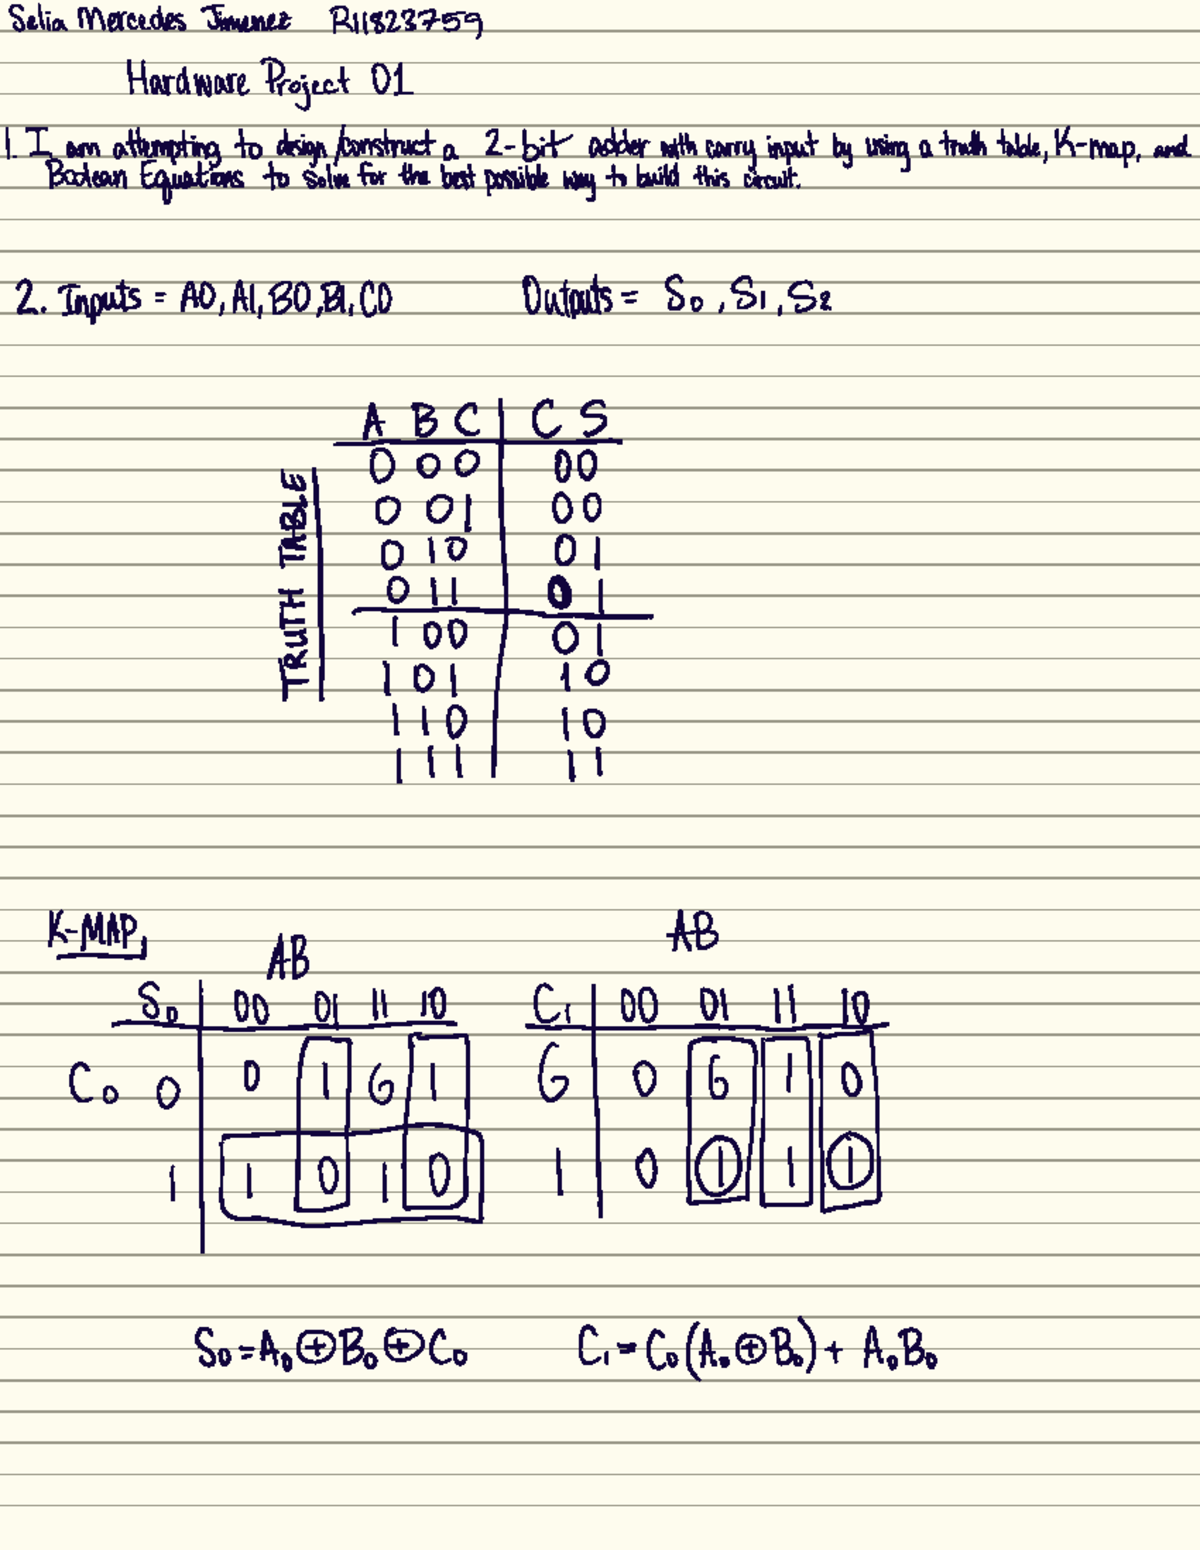 Selia Mercedes Jimenez R11823759
Hardware Project 01
1. I am attempting to design/construct a 2-bit adder with carry input by using a truth table, K-map, and
Boolean Equations to solve for the best possible way to build this circuit.
2. Inputs = A0, A1, B0, B1, C0 Outputs = S0, S1, S2
TRUTH TABLE
A B C | C S
0 0 0 | 0 0
0 0 1 | 0 0
0 1 0 | 0 1
0 1 1 | 0 1
1 0 0 | 0 1
1 0 1 | 1 0
1 1 0 | 1 0
1 1 1 | 1 1
K-MAP,
AB AB
S0 | 00 01 11 10 C1 | 00 01 11 10
C0 0 | 0 1 0 1 0 | 0 0 1 0
1 | 1 0 1 0 1 | 0 1 1 1
S0 = A0 ⊕ B0 ⊕ C0 C1 = C0(A0 ⊕ B0) + A0B0